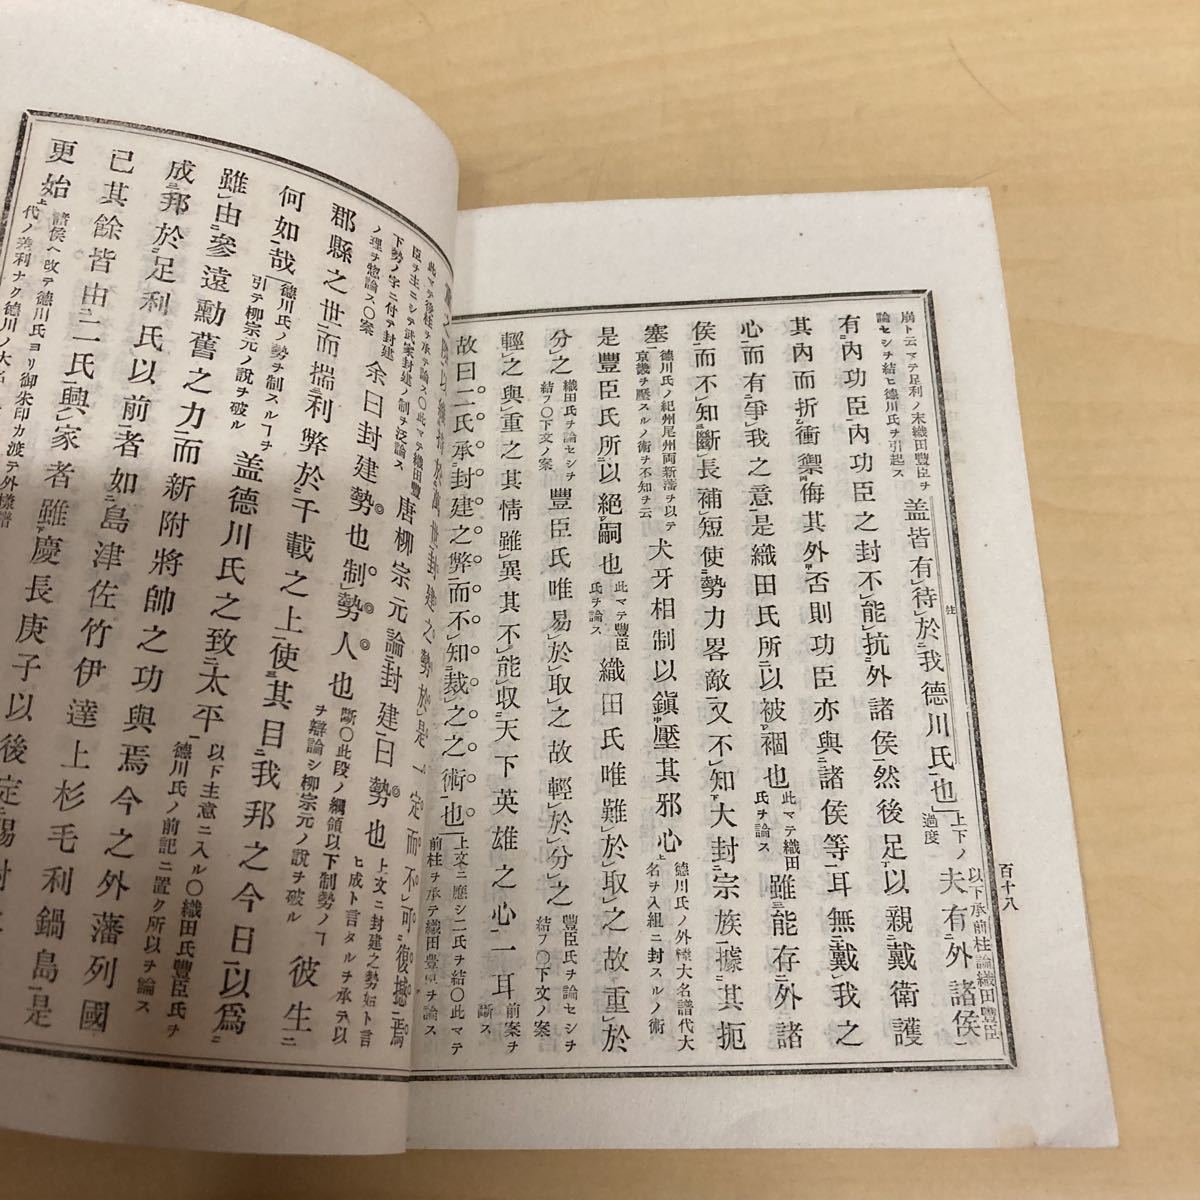 百十八
崩ト云マテ足利ノ末織田豐臣ヲ
論セシヲ結ヒ德川氏ヲ引起ス
盖皆有待於我德川氏也
上下ノ過度
夫有外諸侯
以下承前柱論織田豐臣
有內功臣內功臣之封不能抗外諸侯然後足以親戴衛護
其內而折衝禦侮其外否則功臣亦與諸侯等耳無戴我之
心而有爭我之意是織田氏所以被禍也
此マテ織田氏ヲ論ス
雖能存外諸
侯而不知斷長補短使勢力畧敵又不知大封宗族據其扼
塞
德川氏ノ紀州尾州両新藩ヲ以テ
京畿ヲ壓スルノ術ヲ不知ヲ云
犬牙相制以鎭壓其邪心
德川氏ノ外樣大名譜代大
名ヲ入組ニ封スルノ術
是豐臣氏所以絕嗣也
此マテ豐臣氏ヲ論ス
織田氏唯難於取之故重於
分之
織田氏ヲ論セシヲ
結フ〇下文ノ案
豐臣氏唯易於取之故輕於分之
豐臣氏ヲ論セシヲ
結フ〇下文ノ案
輕之與重之其情雖異其不能收天下英雄之心一耳
前案ヲ斷ス
故曰二氏承封建之弊而不知裁之之術也
上文ニ應シ二氏ヲ結〇此マテ
前柱ヲ承テ織田豐臣ヲ論ス
封建之勢於是一定而不可復撼焉
此マテ後柱ヲ承テ論ス〇此マテ織田豐
臣ヲ主ニシテ武家封建ノ制ヲ泛論ス
下勢ノ字ニ付テ封建
ノ理ヲ惣論ス〇案
唐柳宗元論封建曰勢也
上文ニ封建之勢始ト言
ヒ成ト言タルヲ承テ以
余曰封建勢也制勢人也
斷〇此段ノ綱領以下制勢ノヿ
ヲ辯論シ柳宗元ノ說ヲ破ル
彼生二
郡縣之世而揣利弊於千載之上使其目我邦之今日以爲
何如哉
德川氏ノ勢ヲ制スルヿヲ
引テ柳宗元ノ說ヲ破ル
盖德川氏之致太平
以下主意ニ入ル〇織田氏豐臣氏ヲ
德川氏ノ前記ニ置ク所以ヲ論ス
雖由參遠勳舊之力而新附將帥之功與焉今之外藩列國
成邦於足利氏以前者如島津佐竹伊達上杉毛利鍋島是
已其餘皆由二氏興家者雖慶長庚子以後定賜封土
更始
諸侯ヘ改テ德川氏ヨリ御朱印カ渡テ外樣譜